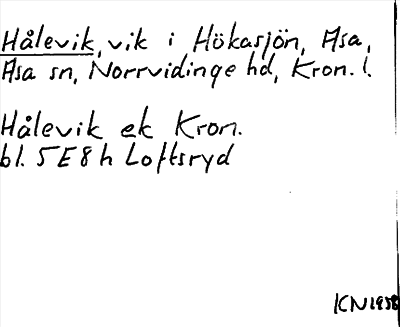 Hålevik, vik i Hökasjön, Asa,
Asa sn, Norrvidinge hd, Kron. l.
Hålevik ek Kron.
bl. 5E8h Loftsryd
KN1958